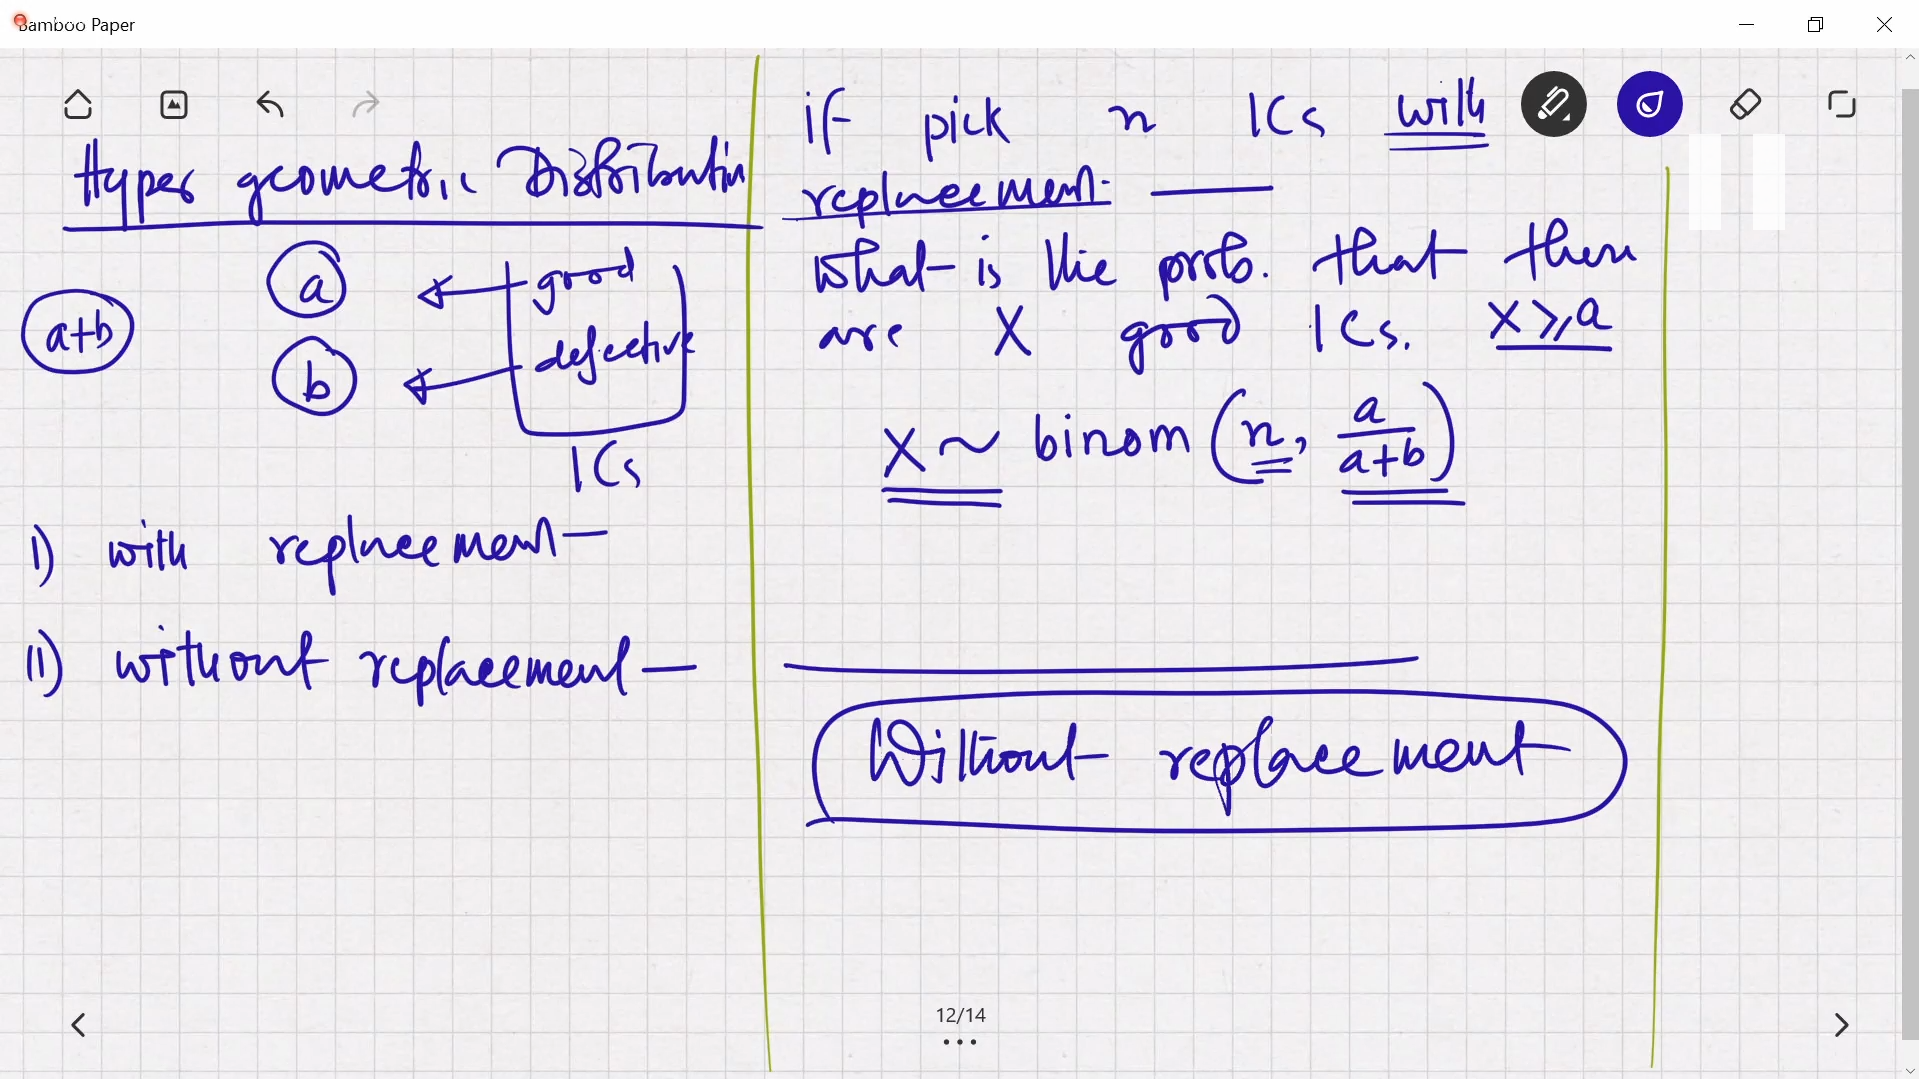 Bamboo Paper
Hyper geometric Distribution
a
good
a+b
defective
b
ICs
I) with replacement —
II) without replacement —
if pick n ICs with
replacement —
what is the prob. that there
are X good ICs. X ⩾ a
X ~ binom (n, a/(a+b))
Without replacement
12/14